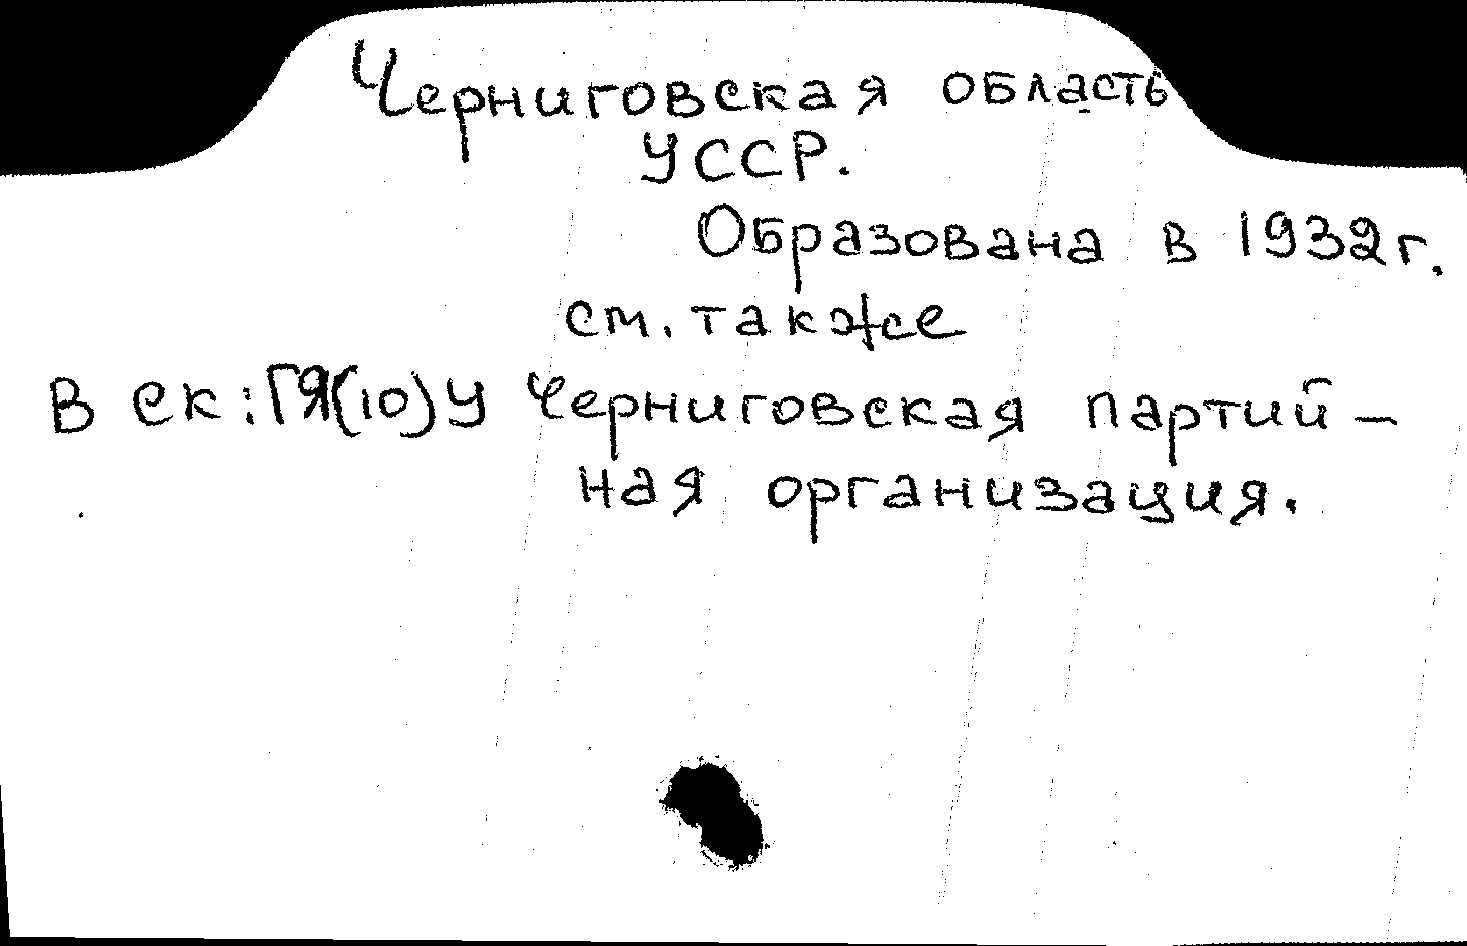 Черниговская область
УССР.
Образована в 1932г.
см. также
В ск: ГЯ(10)У Черниговская партий-
ная организация.